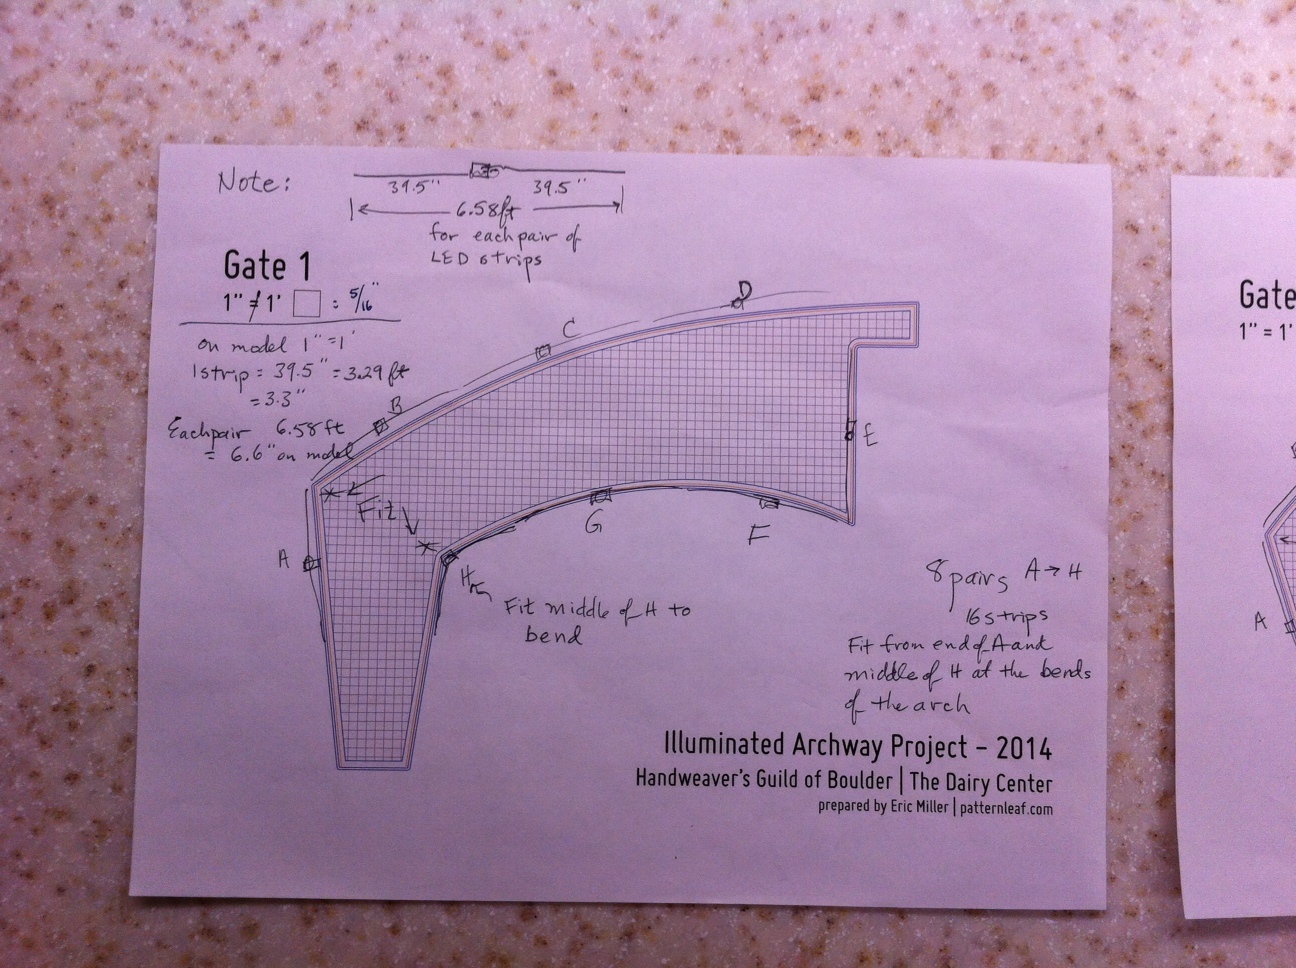 Note:
39.5" 39.5"
6.58ft
for each pair of
LED strips
Gate 1
1" ≠ 1' : 5/16"
on model 1" = 1'
1strip = 39.5" = 3.29 ft
= 3.3"
Each pair 6.58 ft
= 6.6" on model
A
B
C
D
E
F
G
H
Fit
Fit middle of H to
bend
8 pairs A → H
16 strips
Fit from end of A and
middle of H at the bends
of the arch
Illuminated Archway Project – 2014
Handweaver's Guild of Boulder | The Dairy Center
prepared by Eric Miller | patternleaf.com
Gate
1" = 1'
A